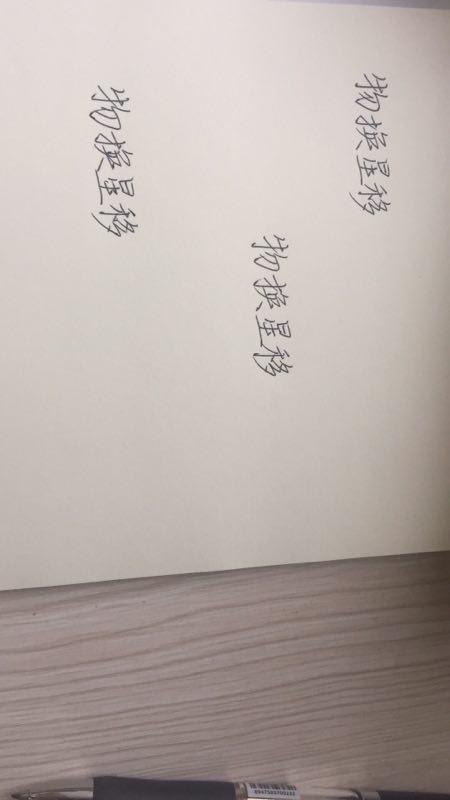 物换星移
物换星移
物换星移